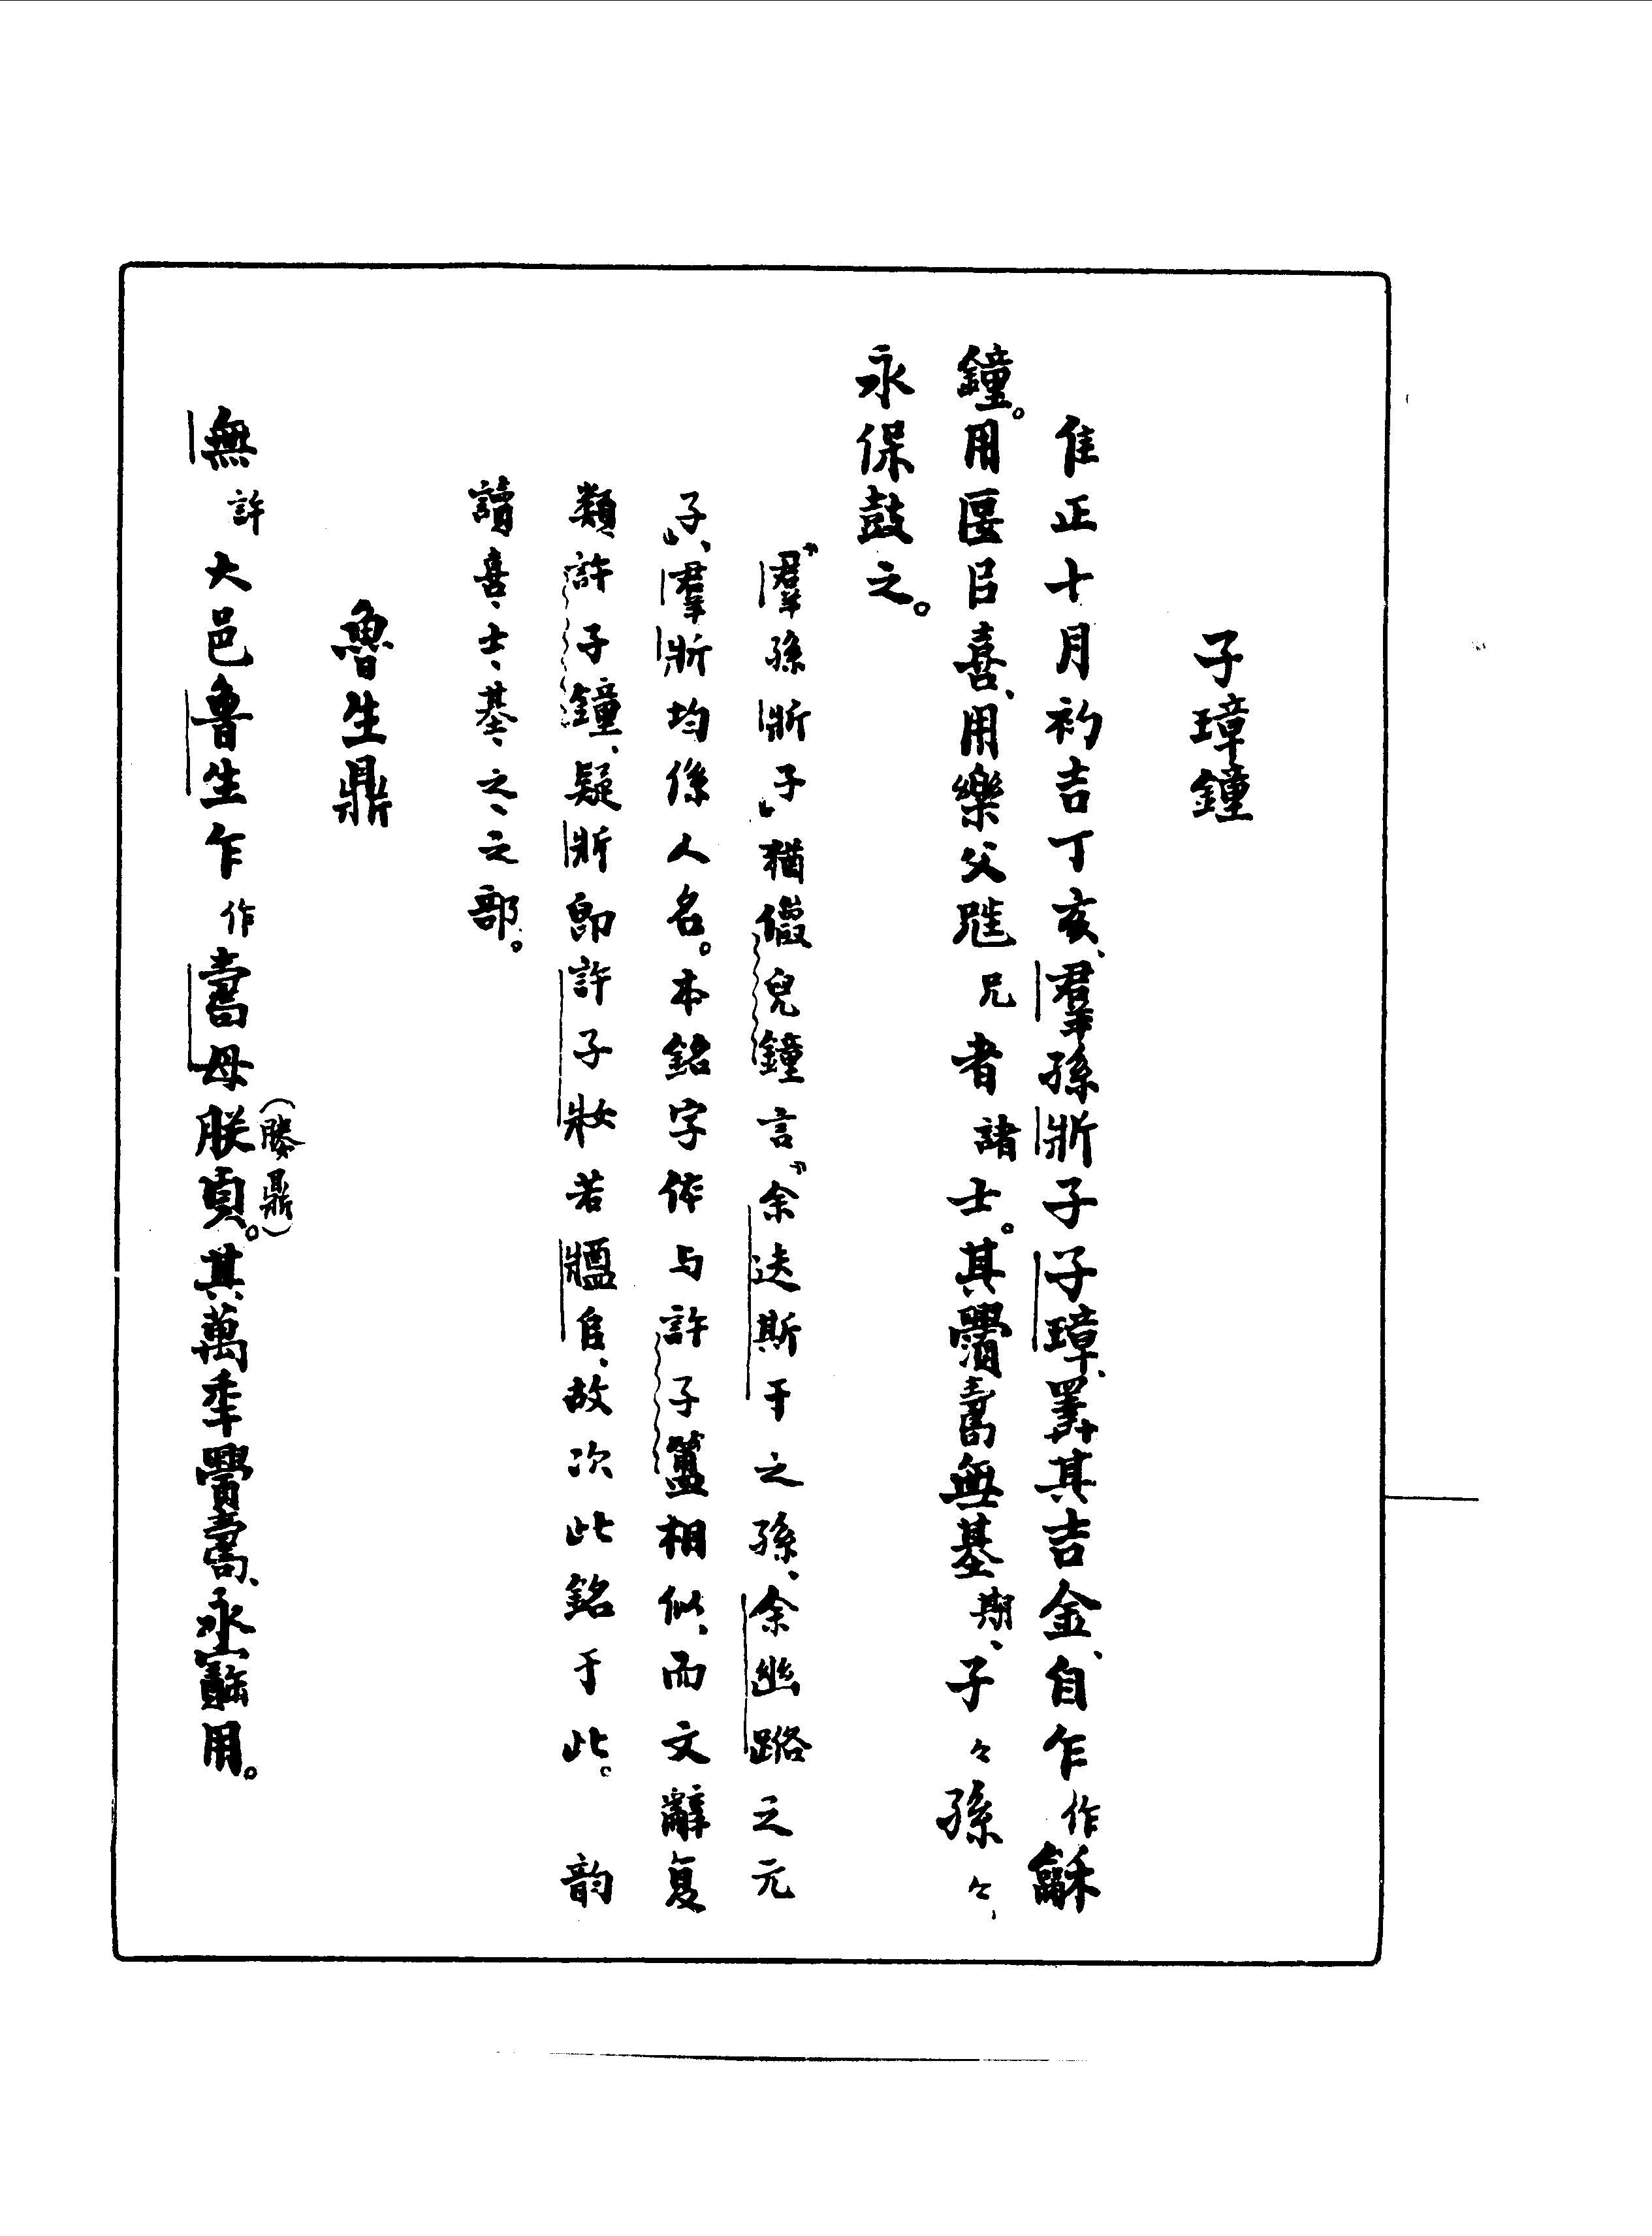 子璋鐘
隹正十月初吉丁亥、羣孫斨子子璋、擇其吉金、自乍作龢
鐘。用匽㠯喜、用樂父𨈭兄者諸士。其眉壽無基期、子々孫々、
永保鼓之。
“羣孫斨子”猶儠兒鐘言“余迭斯于之孫、余幽𨂢之元
子”、羣斨均係人名。本銘字体与許子簠相似、而文辭复
類許子鐘、疑斨即許子妝若𤖕𠂤、故次此銘于此。　韵
讀喜、士、基、之、之部。
魯生鼎
無許大邑魯生乍作壽母朕貞(媵鼎)。其萬年眉壽、永寶用。